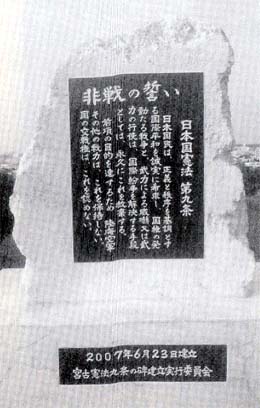 非戦の誓い
日本国憲法 第九条
日本国民は、正義と秩序を基調とす
る国際平和を誠実に希求し、国権の発
動たる戦争と、武力による威嚇又は武
力の行使は、国際紛争を解決する手段
としては、永久にこれを放棄する。
前項の目的を達するため、陸海空軍
その他の戦力は、これを保持しない。
国の交戦権は、これを認めない。
2007年6月23日建立
宮古憲法九条の碑建立実行委員会